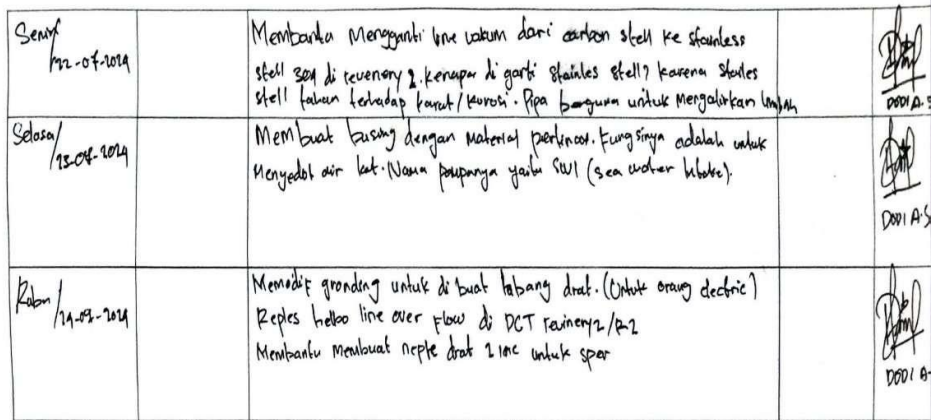 Senin/
22-07-2024
Membantu Mengganti line vakum dari carbon stell ke stainless
stell 304 di revenery 2. kenapa di ganti stainles stell? karena stailes
stell tahan terhadap karat/korosi. Pipa berguna untuk Mengalirkan limbah
DODI A. S
Selasa/
23-07-2024
Membuat busing dengan Material perlinos. Fungsinya adalah untuk
Menyedot air laut. Nama pompanya yaitu SWI (sea water Intake).
DODI A. S
Rabu/
24-07-2024
Memodif gronding untuk di buat lubang drat. (Untuk orang electric)
Reples helbo line over Flow di DCT revinery2/R2
Membantu membuat neple drat 2 inc untuk sper
DODI A-